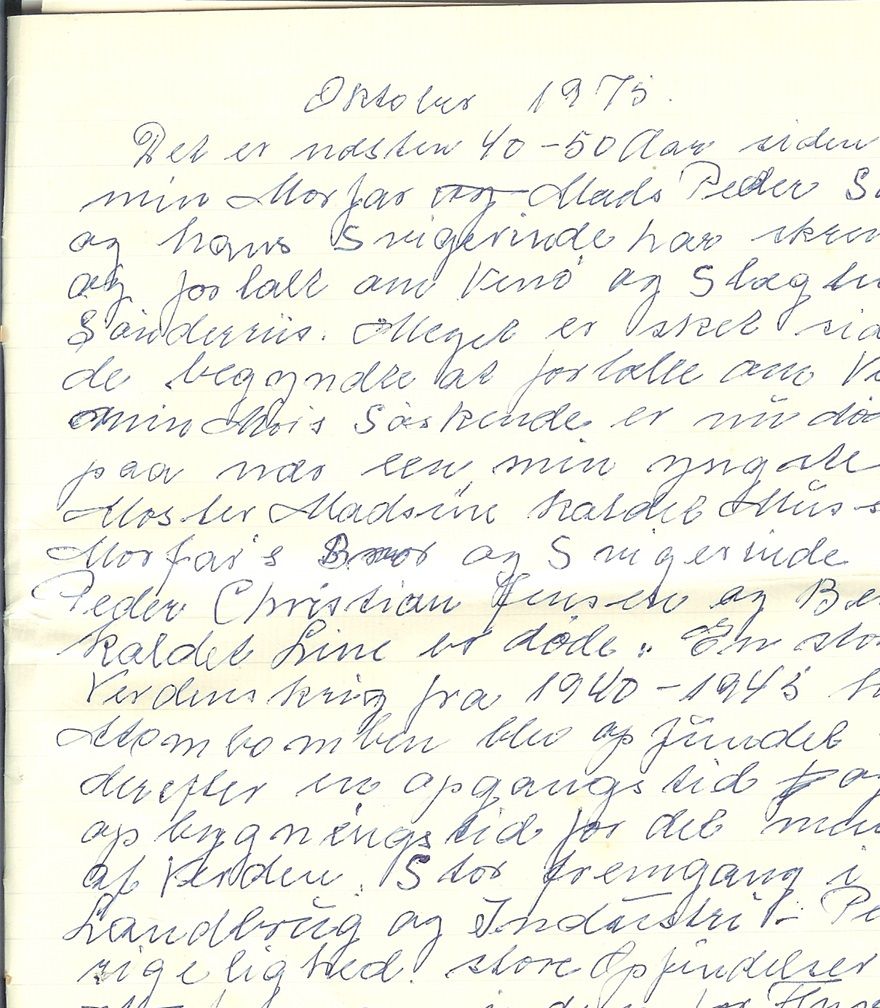 Oktober 1975.
Det er næsten 40-50 Aar siden
min Morfar og Mads Peder S
og hans Svigerinde har skrev
og fortalt om Venø og Slægten
Sønderriis. Meget er sket sid
de begyndte at fortælle om Ve
min Mors Søskende er nu dø
paa nær een, min yngste
Moster Madsine kaldet Muss
Morfar's Bror og Svigerinde
Peder Christian Jensen og Be
kaldet Line er døde. En stor
Verdenskrig fra 1940-1945 h
Atombomben blev opfundet
derefter en opgangstid og
opbygningstid for det
af Verden. Stor fremgang i
Landbrug og Industri - Pe
rigelighed. store Opfindelser